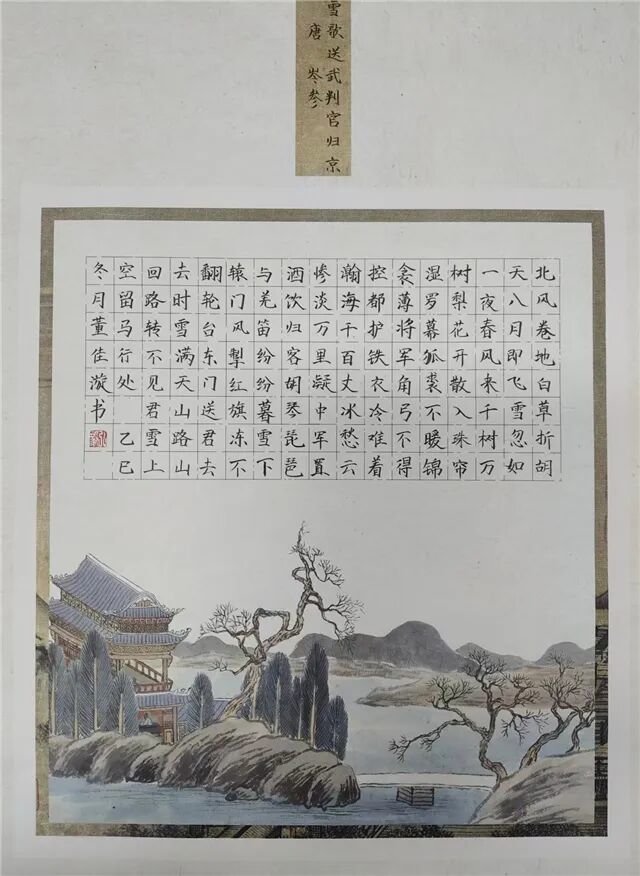 雪歌送武判官归京
唐 岑参
北风卷地白草折胡
天八月即飞雪忽如
一夜春风来千树万
树梨花开散入珠帘
湿罗幕狐裘不暖锦
衾薄将军角弓不得
控都护铁衣冷难着
瀚海千百丈冰愁云
惨淡万里凝中军置
酒饮归客胡琴琵琶
与羌笛纷纷暮雪下
辕门风掣红旗冻不
翻轮台东门送君去
去时雪满天山路山
回路转不见君雪上
空留马行处 乙巳
冬月董佳漩书